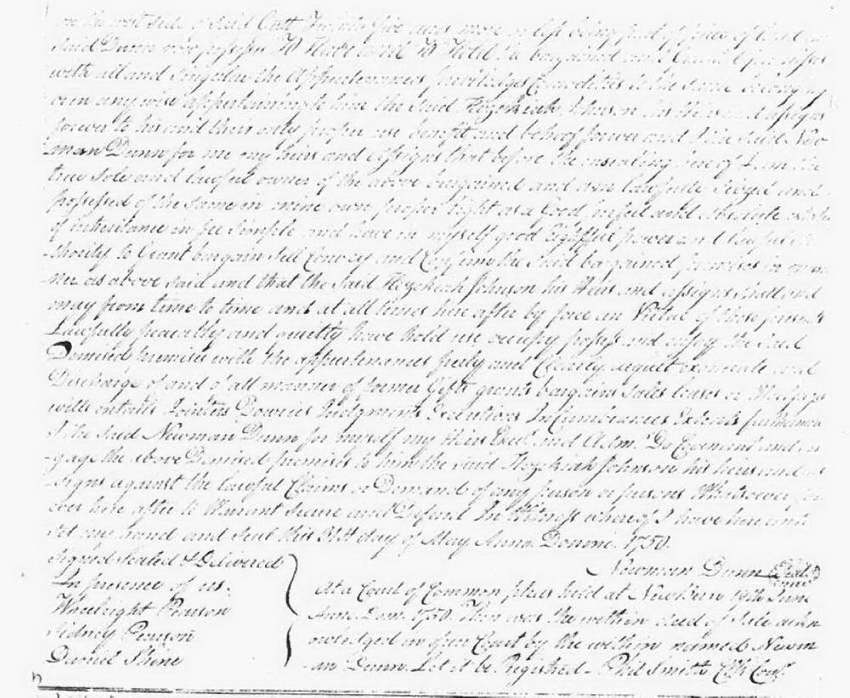 on the west side of said Cutt Twenty five acres more or less being part of piece of Land
Said Dunn now possess To Have and To Hold the bargained and Granted premisses
with all and Singular the Appurtenances priviledges Comodities to the same belong
or in any wise appertaining to him the Said Hezekiah Johnson his Heirs and assigns
forever to his and their only proper use benefit and behoof forever and I the said New
man Dunn for me my heirs and assigns that before the ensealing hereof I am the
true Sole and Lawful owner of the above bargained and am lawfully Seized and
possessed of the same in mine own proper right as a Good perfect and absolute estate
of inheritance in fee simple and have in myself good Rightfull power and Lawful au
thority to Grant bargain Sell Convey and Confirm the Said bargained premises in man
ner as above said and that the said Hezekiah Johnson his Heirs and assigns shall and
may from time to time and at all times here after by force an Virtue of these presents
Lawfully peaceably and quietly have hold use occupy possess and enjoy the Said
Demised premises with the appurtenances freely and Clearly acquit exonerate and
Discharge of and of all manner of former Gifts grants bargains Sales leases or Mortgages
wills entails Jointers Dowries Judgments Executions Incumbrances Extents furthermore
I the said Newman Dunn for myself my Heirs Exec. and Adm. Do Covenant and en
gage the above Demised premises to him the said Hezekiah Johnson his heirs and as
signs against the Lawful Claims or Demand of any person or persons Whatsoever for
ever here after to Warrant Secure and Defend In Witness whereof I have here unto
Set my hand and Seal this 31st day of May Anno Domme. 1750.
Signed Sealed & Delivered
In presence of us.
Wheelright Pearson
Sidney Pearson
Daniel Shine
Newman Dunn Seal
At a Court of Common pleas held at New Bern June
Anno Dom. 1750. Then was the within deed of Sale ackn
owledged in open Court by the within named Newm
an Dunn. Let it be Registred. Phil Smith Clk Court